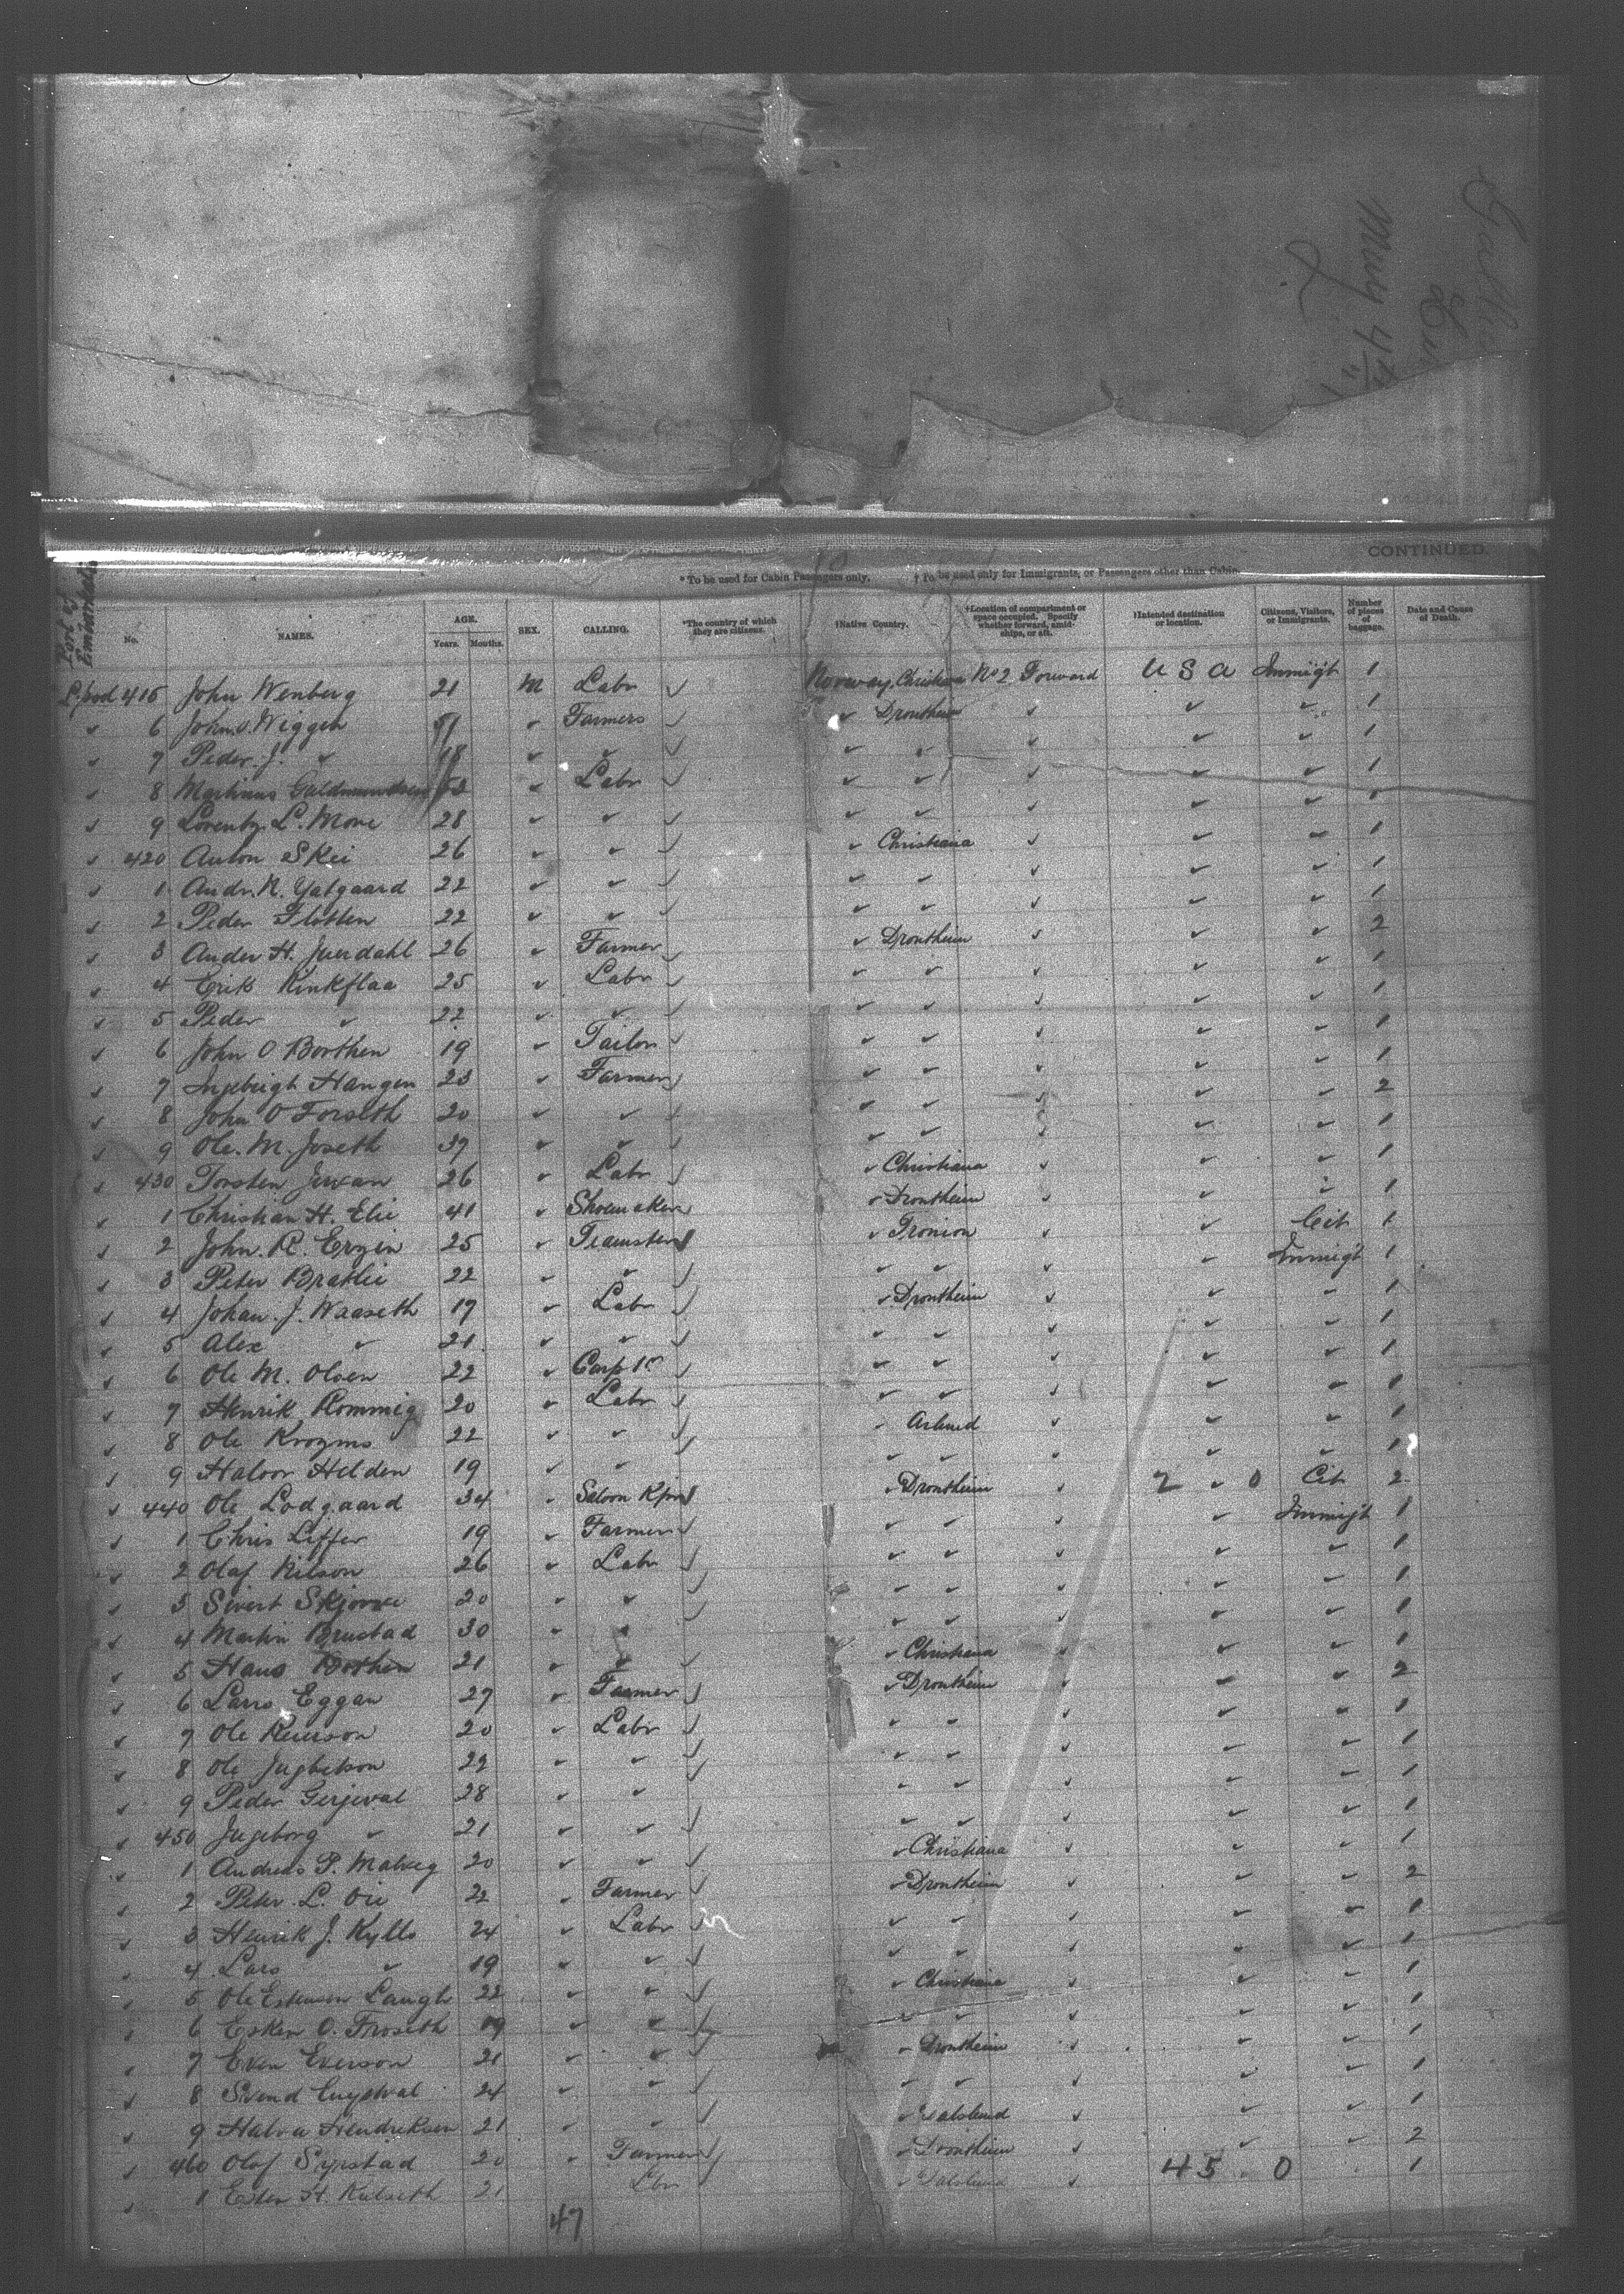 May 4th
CONTINUED.
*To be used for Cabin Passengers only. †To be used only for Immigrants, or Passengers other than Cabin.
Port of Embarkat
No. NAMES. AGE. Years. Months. SEX. CALLING. *The country of which they are citizens. †Native Country. †Location of compartment or space occupied. Specify whether forward, amidships, or aft. †Intended destination or location. Citizens, Visitors, or Immigrants. Number of pieces of baggage. Date and Cause of Death.
L'pool 415 John Wenberg 21 M Labr ✓ Norway, Christiana No 2 Forward U S A Immig't 1
✓ 6 John Wiggen ✓ Farmers ✓ ✓ Drontheim ✓ ✓ ✓ 1
✓ 7 Peder J. ✓ 18 ✓ ✓ ✓ ✓ ✓ ✓ ✓ ✓ 1
✓ 8 Martinus ✓ Labr ✓ ✓ ✓ ✓ ✓ ✓ 1
✓ 9 Lorentz L. More 28 ✓ ✓ ✓ ✓ ✓ ✓ ✓ ✓ 1
✓ 420 Anton Skei 26 ✓ ✓ ✓ ✓ Christiana ✓ ✓ ✓ 1
✓ 1 Andr. N. Yatgaard 22 ✓ ✓ ✓ ✓ ✓ ✓ ✓ ✓ 1
✓ 2 Peder Flotten 22 ✓ ✓ ✓ ✓ ✓ ✓ ✓ ✓ 1
✓ 3 Ander H. 26 ✓ Farmer ✓ ✓ Drontheim ✓ ✓ ✓ 2
✓ 4 Erik Kinkflaa 25 ✓ Labr ✓ ✓ ✓ ✓ ✓ ✓ 1
✓ 5 Peder ✓ 22 ✓ ✓ ✓ ✓ ✓ ✓ ✓ ✓ 1
✓ 6 John O Borthen 19 ✓ Tailor ✓ ✓ ✓ ✓ ✓ ✓ 1
✓ 7 Hangen 23 ✓ Farmer ✓ ✓ ✓ ✓ ✓ ✓ 1
✓ 8 John O Forseth 20 ✓ ✓ ✓ ✓ ✓ ✓ ✓ ✓ 2
✓ 9 Ole. M. Joseth 37 ✓ ✓ ✓ ✓ ✓ ✓ ✓ ✓ 1
✓ 430 Torsten 26 ✓ Labr ✓ ✓ Christiana ✓ ✓ ✓ 1
✓ 1 Christian H. Elie 41 ✓ Shoemaker ✓ ✓ Drontheim ✓ ✓ ✓ 1
✓ 2 John. R. 25 ✓ Teamster ✓ ✓ ✓ ✓ Cit 1
✓ 3 Peter Bratlie 22 ✓ ✓ ✓ ✓ ✓ ✓ ✓ Immig't 1
✓ 4 Johan. J. Waaseth 19 ✓ Labr ✓ ✓ Drontheim ✓ ✓ ✓ 1
✓ 5 Alex ✓ 21 ✓ ✓ ✓ ✓ ✓ ✓ ✓ ✓ 1
✓ 6 Ole M. Olsen 22 ✓ Carp'r ✓ ✓ ✓ ✓ ✓ ✓ 1
✓ 7 Henrik Rommig 20 ✓ Labr ✓ ✓ ✓ ✓ ✓ ✓ 1
✓ 8 Ole 22 ✓ ✓ ✓ ✓ ✓ ✓ ✓ 1
✓ 9 Haloor Helden 19 ✓ ✓ ✓ ✓ ✓ ✓ ✓ 1
✓ 440 Ole Lodgaard 34 ✓ Saloon Kpr ✓ ✓ Drontheim ✓ 2 ✓ 0 Cit 2
✓ 1 Chris Liffer 19 ✓ Farmer ✓ ✓ ✓ ✓ ✓ Immig't 1
✓ 2 Olaf Nilson 26 ✓ Labr ✓ ✓ ✓ ✓ ✓ ✓ 1
✓ 3 Sivert 20 ✓ ✓ ✓ ✓ ✓ ✓ ✓ ✓ 1
✓ 4 Martin Brustad 30 ✓ ✓ ✓ ✓ ✓ ✓ ✓ ✓ 1
✓ 5 Hans 21 ✓ ✓ ✓ ✓ Christiana ✓ ✓ ✓ 1
✓ 6 Lars Eggan 27 ✓ Farmer ✓ ✓ Drontheim ✓ ✓ ✓ 2
✓ 7 Ole 20 ✓ Labr ✓ ✓ ✓ ✓ ✓ ✓ 1
✓ 8 Ole 22 ✓ ✓ ✓ ✓ ✓ ✓ ✓ ✓ 1
✓ 9 Peder Gerjeval 28 ✓ ✓ ✓ ✓ ✓ ✓ ✓ ✓ 1
✓ 450 Ingeborg ✓ 21 ✓ ✓ ✓ ✓ ✓ ✓ ✓ ✓ 1
✓ 1 Andreas P. Malvig 20 ✓ ✓ ✓ ✓ Christiana ✓ ✓ ✓ 1
✓ 2 Peter L. Oie 22 ✓ Farmer ✓ ✓ Drontheim ✓ ✓ ✓ 2
✓ 3 Henrik J. Kyllo 24 ✓ Labr ✓ ✓ ✓ ✓ ✓ ✓ 1
✓ 4 Lars ✓ 19 ✓ ✓ ✓ ✓ ✓ ✓ ✓ ✓ 1
✓ 5 Ole Estenson Laugh 22 ✓ ✓ ✓ ✓ Christiana ✓ ✓ ✓ 1
✓ 6 Esken O. Froseth 19 ✓ ✓ ✓ ✓ ✓ ✓ ✓ ✓ 1
✓ 7 Even Everson 21 ✓ ✓ ✓ ✓ Drontheim ✓ ✓ ✓ 1
✓ 8 Svend 24 ✓ ✓ ✓ ✓ ✓ ✓ ✓ ✓ 1
✓ 9 Halva Hendriksen 21 ✓ ✓ ✓ ✓ ✓ ✓ ✓ 1
✓ 460 Olof Syrstad 20 ✓ Farmer ✓ ✓ Drontheim ✓ ✓ ✓ 2
✓ 1 Esten H. Kulseth 21 Lbr ✓ ✓ 45 0 1
47